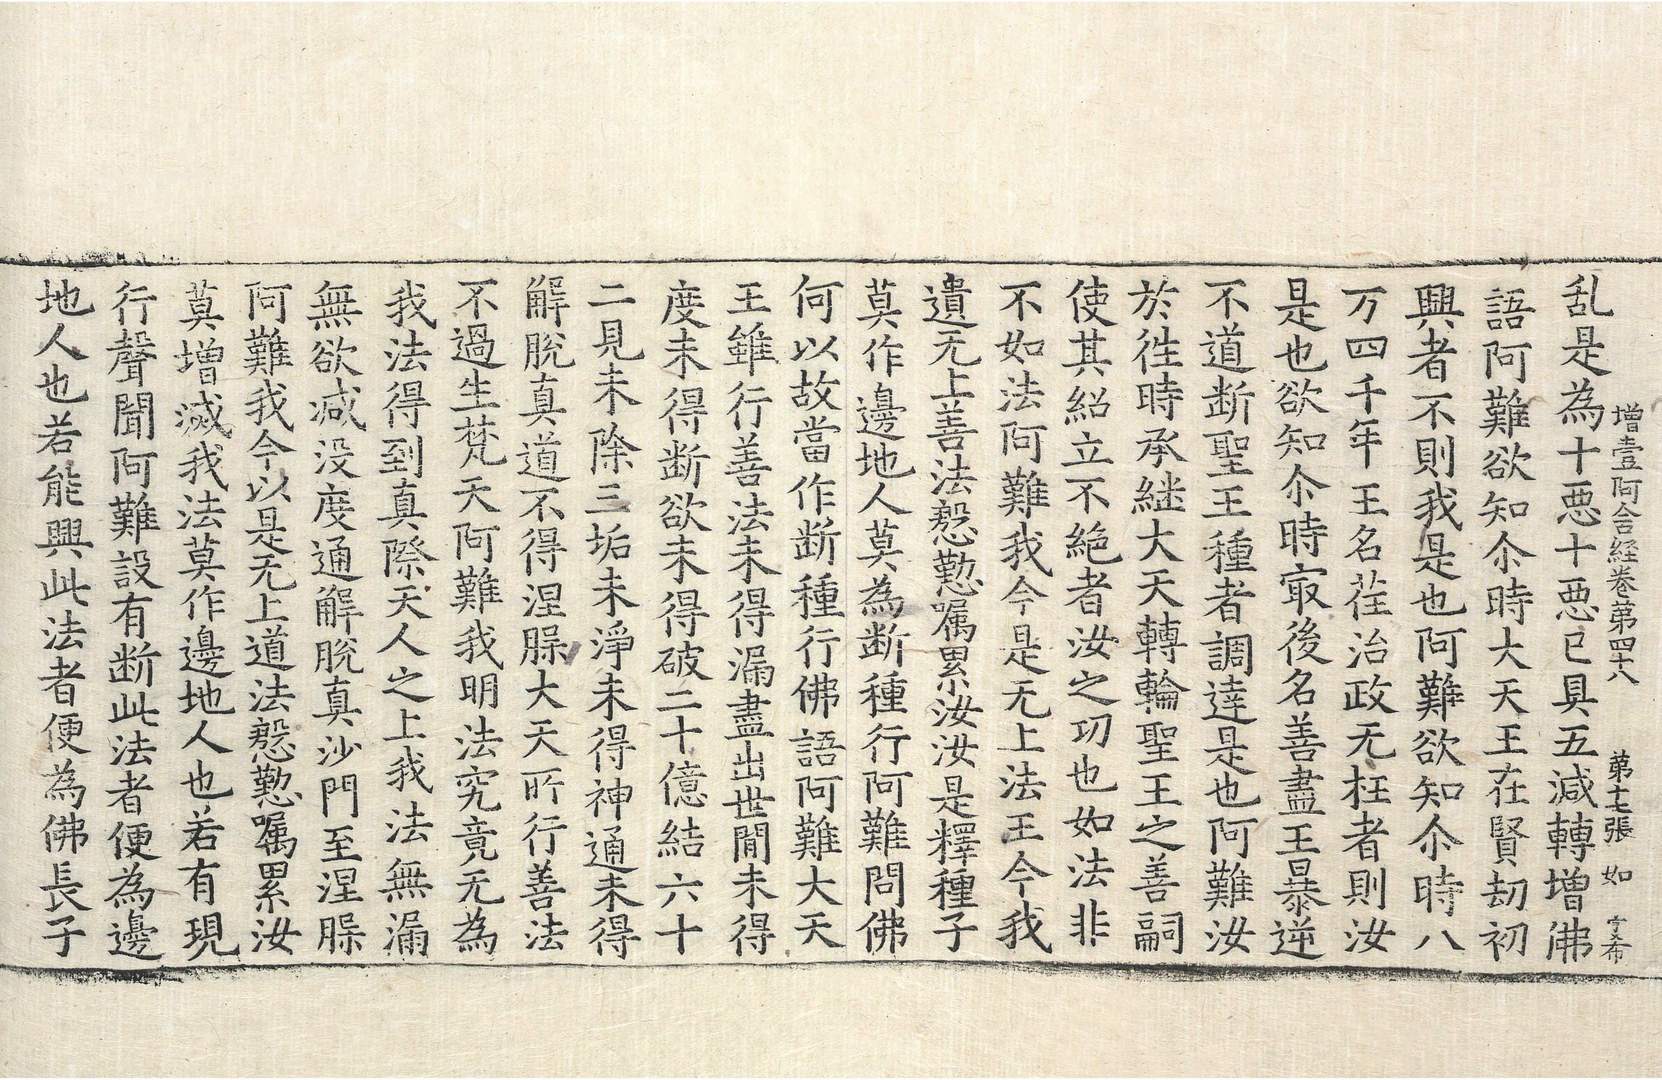 増壹阿含経卷第四十八 第十七張 如 守希
乱是為十悪十悪已具五減轉増佛
語阿難欲知尒時大天王在賢劫初
興者不則我是也阿難欲知尒時八
万四千年王名荏治政无枉者則汝
是也欲知尒時㝡後名善盡王暴逆
不道断聖王種者調達是也阿難汝
於徃時承継大天轉輪聖王之善嗣
使其紹立不絶者汝之功也如法非
不如法阿難我今是无上法王今我
遺无上善法慇懃嘱累汝汝是釋種子
莫作邊地人莫為断種行阿難問佛
何以故當作断種行佛語阿難大天
王雖行善法未得漏盡出世間未得
度未得断欲未得破二十億結六十
二見未除三垢未淨未得神通未得
解脫真道不得涅槃大天所行善法
不過生梵天阿難我明法究竟无為
我法得到真際天人之上我法無漏
無欲減没度通解脫真沙門至涅槃
阿難我今以是无上道法慇懃嘱累汝
莫增減我法莫作邊地人也若有現
行聲聞阿難設有断此法者便為邊
地人也若能興此法者便為佛長子